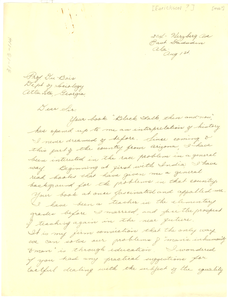 East
Ala.
Aug 1st
Prof Du Bois
Dept of Sociology
Atlanta, Georgia
Dear Sir
Your book "Black Folk then and now"
has opened up to me an interpretation of history
I never dreamed of before. Since coming to
this part of the country from
I have
been interested in the race problem in a general
way. Beginning at first with
I have
read books that have given me a general
background for the problems in that country.
Your book at once fascinated and appalled me.
I have been a teacher in the elementary
grades before I married and
teaching again in the near future.
It is my firm conviction that the only way
we can solve our problems of
I mean is through education. I wondered
if you had any practical suggestions for
tactful dealing with the subject of the equality